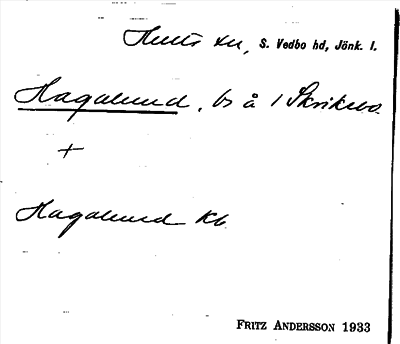 Hults sn, S. Vedbo hd, Jönk. l.
Hagalund, bs å 1 Skriksbo.
+
Hagalund Kb
FRITZ ANDERSSON 1933